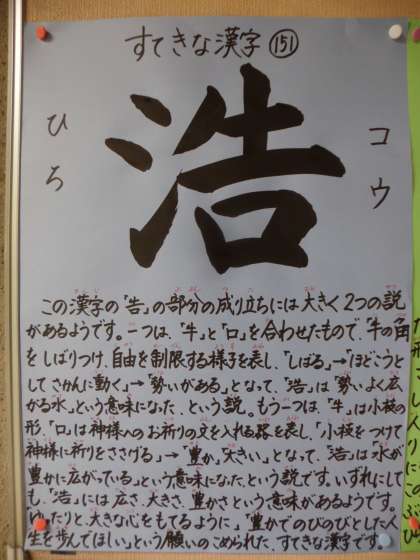 すてきな漢字 151
浩
コウ
ひろ
この漢字の「告」の部分の成り立ちには大きく2つの説
があるようです。一つは、「牛」と「口」を合わせたもので、「牛の角
をしばりつけ、自由を制限する様子を表し、「しばる」→「ほどこうと
してさかんに動く」→「勢いがある」となって、「浩」は「勢いよく広
がる水」という意味になった、という説。もう一つは、「牛」は小枝の
形、「口」は神様へのお祈りの文を入れる器を表し、「小枝をつけて
神様に祈りをささげる」→「豊か」「大きい」となって、「浩」は「水が
豊かに広がっている」という意味になったという説です。いずれにして
も、「浩」には広さ、大きさ、豊かさという意味があるようです。
「ゆったりと、大きな心をもてるように」「豊かでのびのびとした人
生を歩んでほしい」という願いのこめられた、すてきな漢字です。